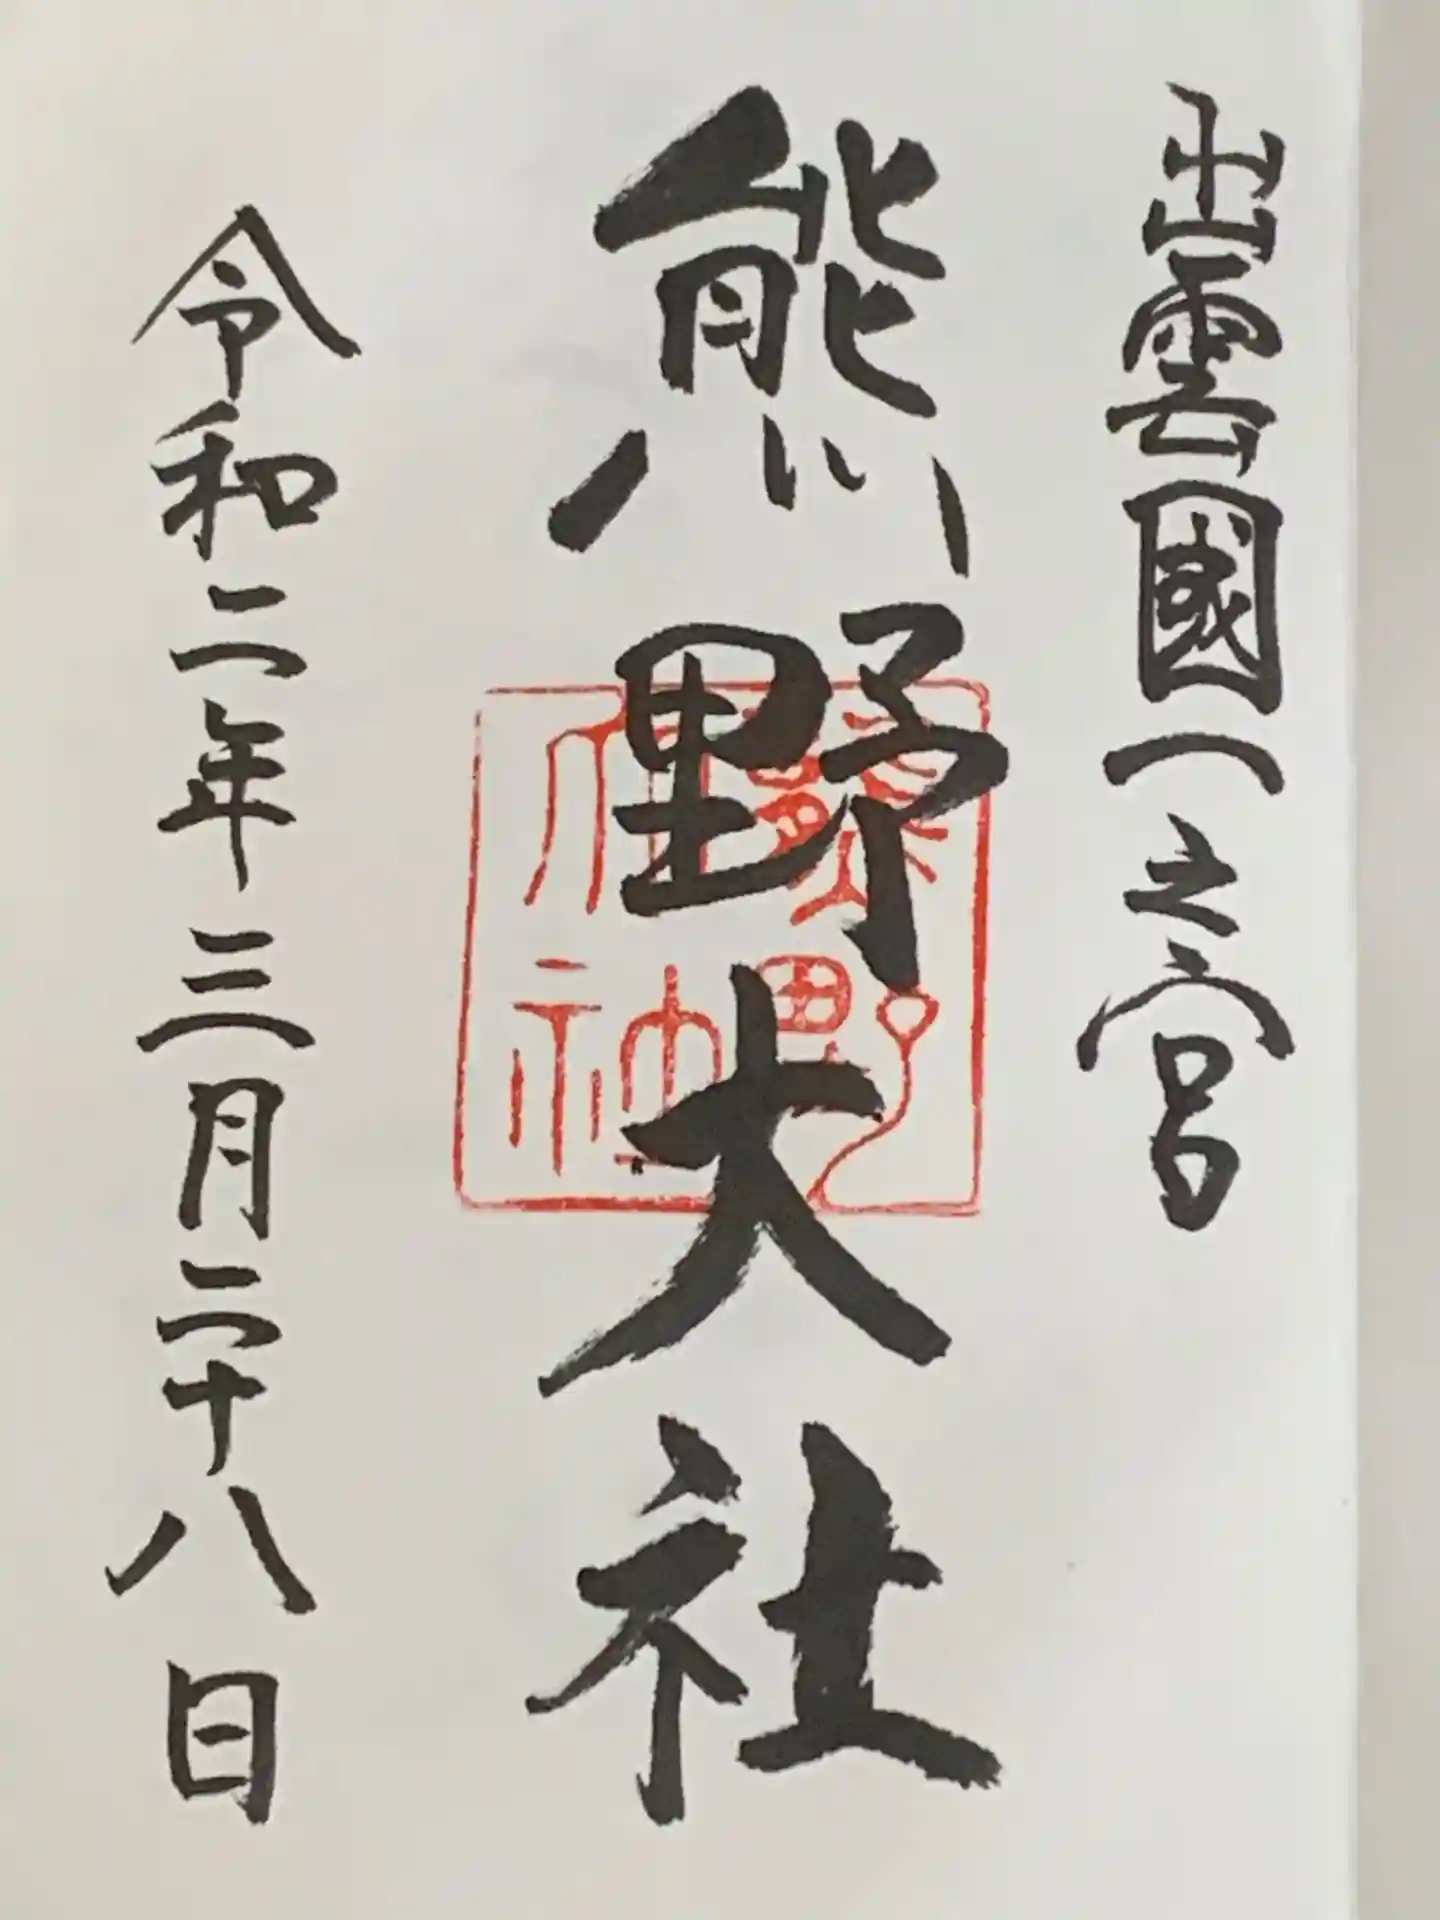 出雲國一之宮
熊野大社
熊野神社
令和二年三月二十八日